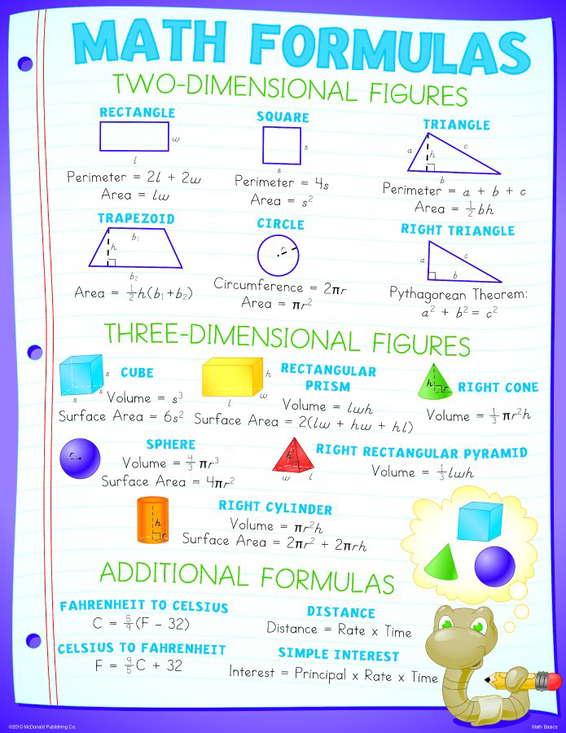 MATH FORMULAS
TWO-DIMENSIONAL FIGURES
RECTANGLE
w
l
Perimeter = 2l + 2w
Area = lw
SQUARE
s
s
Perimeter = 4s
Area = s²
TRIANGLE
a
h
c
b
Perimeter = a + b + c
Area = ½bh
TRAPEZOID
b₁
h
b₂
Area = ½h(b₁+b₂)
CIRCLE
r
Circumference = 2πr
Area = πr²
RIGHT TRIANGLE
a
c
b
Pythagorean Theorem:
a² + b² = c²
THREE-DIMENSIONAL FIGURES
CUBE
s
s
s
Volume = s³
Surface Area = 6s²
RECTANGULAR
PRISM
h
w
l
Volume = lwh
Surface Area = 2(lw + hw + hl)
RIGHT CONE
h
r
Volume = ⅓πr²h
SPHERE
r
Volume = 4/3 πr³
Surface Area = 4πr²
RIGHT RECTANGULAR PYRAMID
h
w
l
Volume = ⅓lwh
RIGHT CYLINDER
h
r
Volume = πr²h
Surface Area = 2πr² + 2πrh
ADDITIONAL FORMULAS
FAHRENHEIT TO CELSIUS
C = 5/9(F − 32)
DISTANCE
Distance = Rate x Time
CELSIUS TO FAHRENHEIT
F = 9/5C + 32
SIMPLE INTEREST
Interest = Principal x Rate x Time
©2010 McDonald Publishing Co.
Math Basics